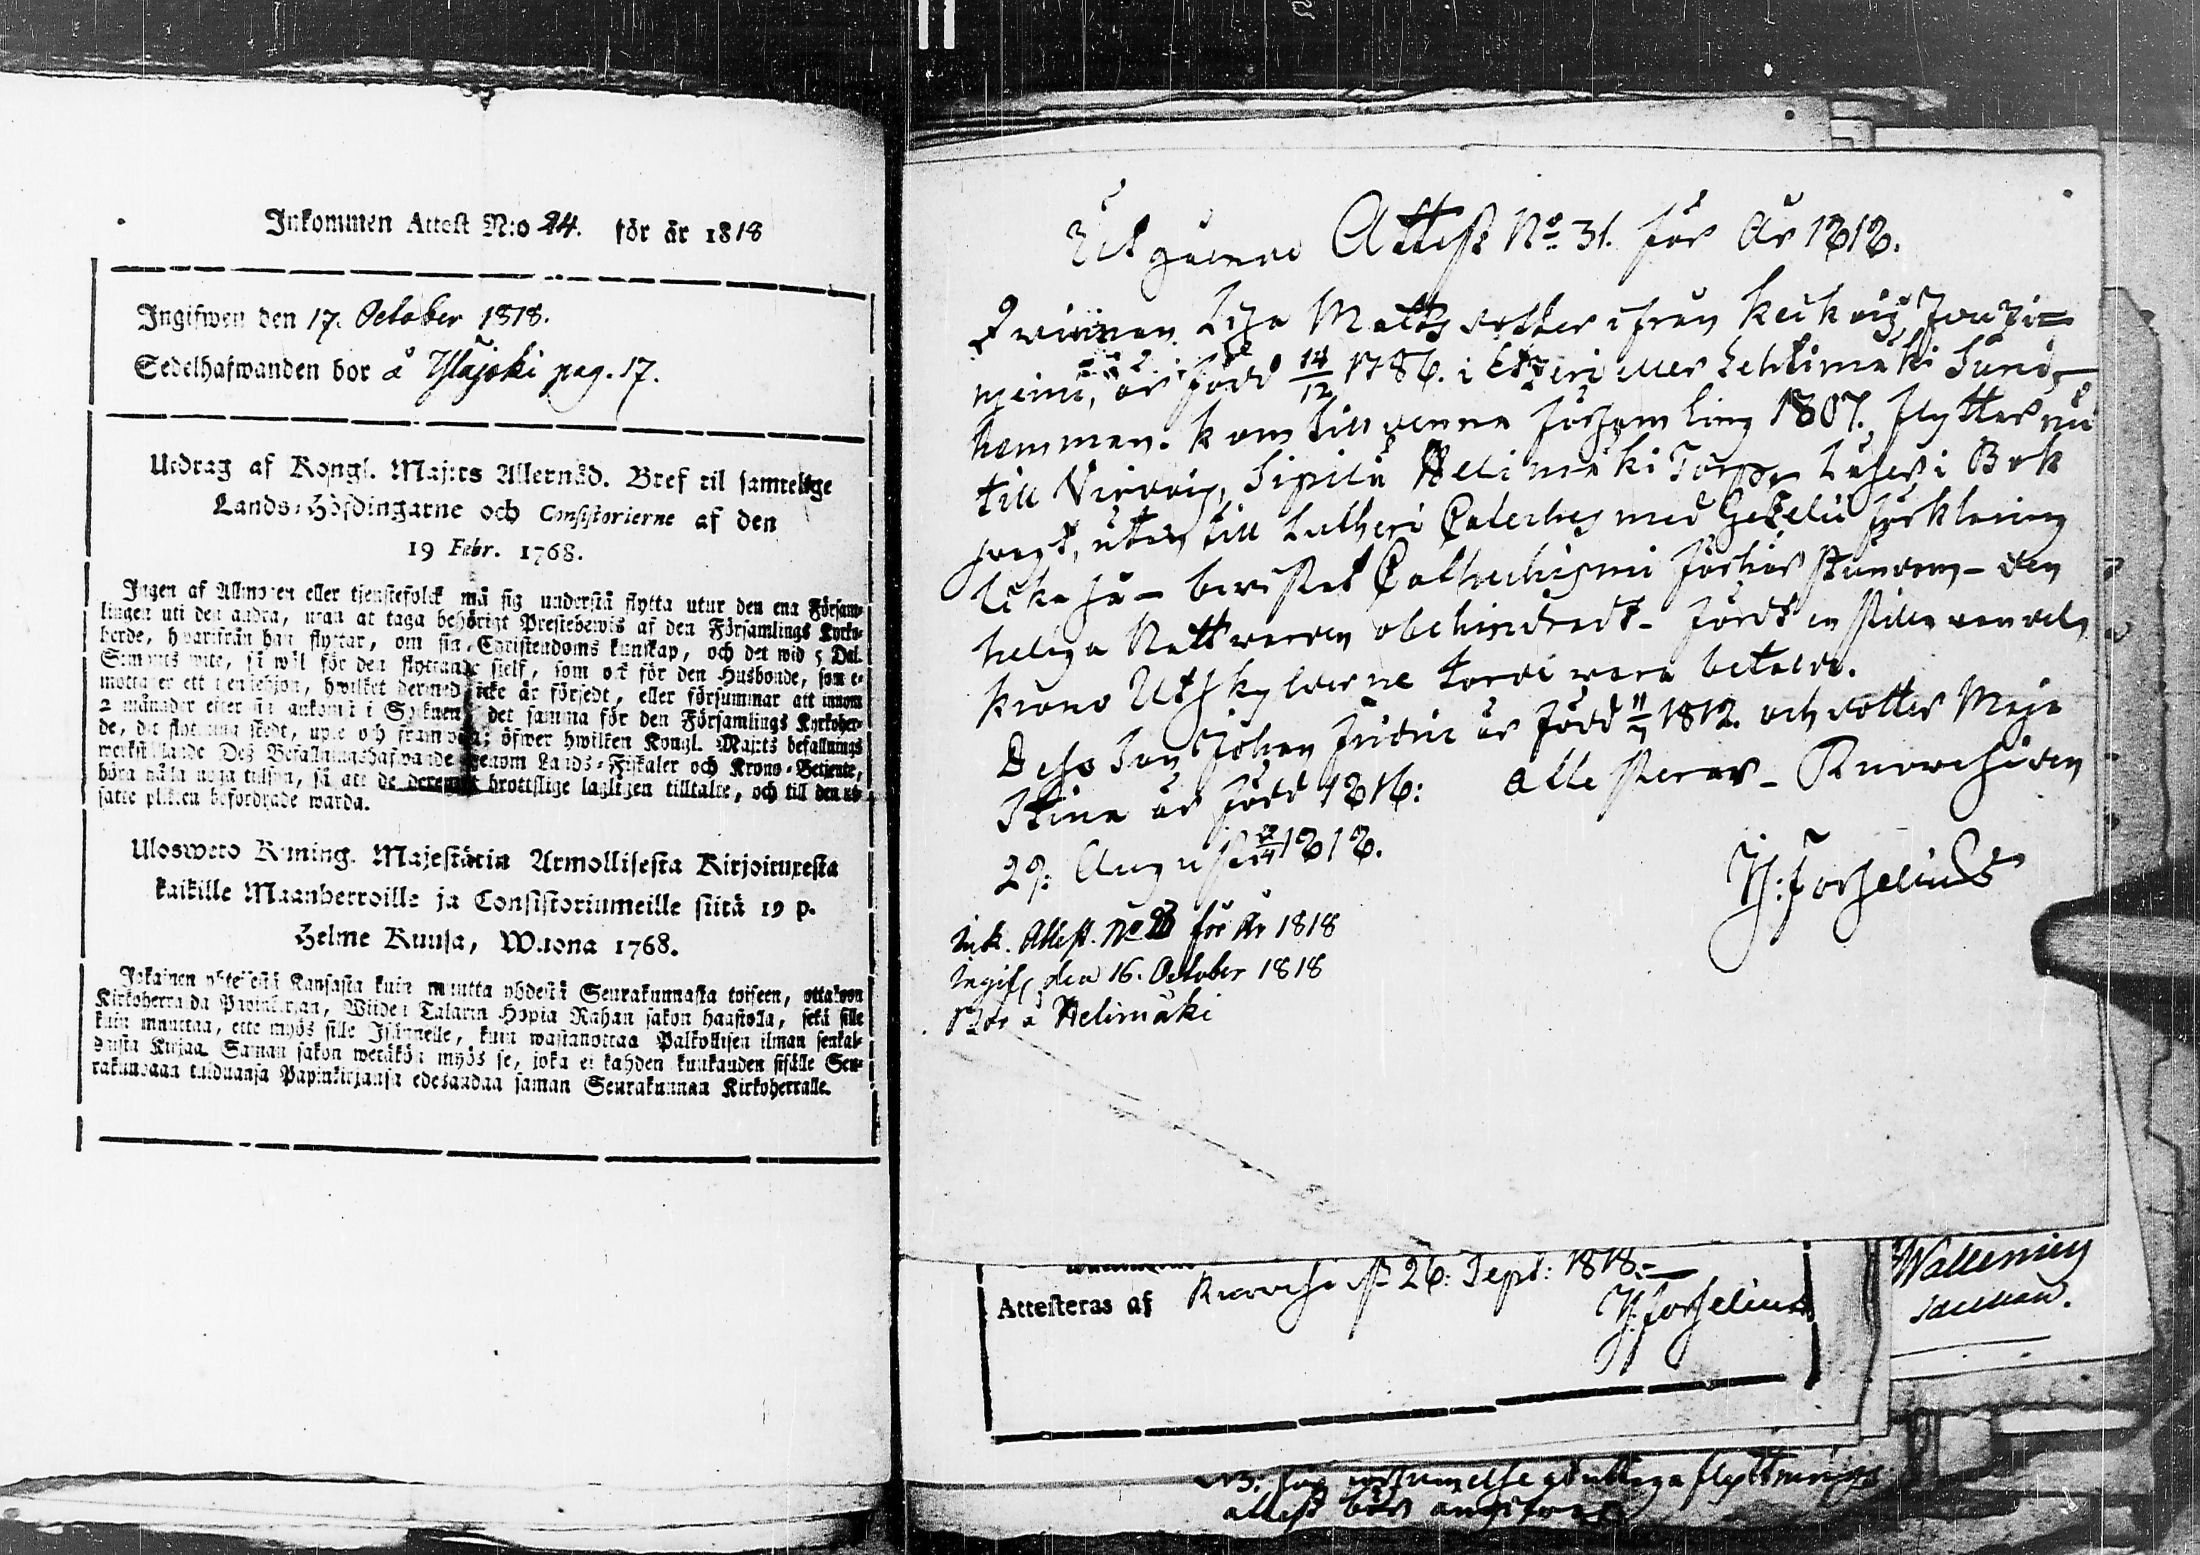 Inkommen Attest N:o 24. för år 1818
Ingifwen den 17. October 1818.
Sedelhafwanden bor å Ylajoki pag. 17.
Utdrag af Kongl. Maj:ts Allernåd. Bref til samtelige
Lands-Höfdingarne och Consistorierne af den
19 Febr. 1768.
Ingen af Allmogen eller tjenstefolck må sig understå flytta utur den ena Försam-
lingen uti den andra, utan at taga behörigt Prestebewis af den Församlings Kyrko-
herde, hwarifrån han flyttar, om sin Christendoms kunskap, och det wid 5 Dal.
Smmts wite, så wäl för den flyttande sielf, som ock för den Husbonde, som e-
motta er ett tienstehjon, hwilket dermed icke är försedt, eller försummar att innom
2 månader efter sin ankomst i Socknen det samma för den Församlings Kyrkoher-
de, dit flyttning skedt, upte och framwisa; öfwer hwilken Kongl. Maj:ts befallnings
werkställande Deß Befallningshafwande genom Lands-Fiskaler och Krono-Betjente,
böra hålla noga tillsyn, så att de deremot brottslige lagligen tilltalte, och till den ut-
satte plikten befordrade warda.
Ulosweto Kuning. Majestätin Armollisesta Kirjoituxesta
kaikille Maanherroille ja Consistoriumeille siitä 19 p.
Helme Kuusa, Wuona 1768.
Jokainen yhteisestä Kansasta kuin muutta yhdestä Seurakunnasta toiseen, ottakoon
Kirkoherralda Papinkirjan, Wiiden Talarin Hopia Rahan sakon haastolla, sekä sille
kuin muuttaa, ette myös sille Isännelle, kuin wastanottaa Palkollisen ilman senkal-
daista Kirjaa. Saman sakon wetäkön myös se, joka ei kahden kuukauden sisälle Seu-
rakundaan tulduansa Papinkirjansa edesandaa saman Seurakunnan Kirkoherralle.
Utgående Attest No 31. för År 1818.
Qvinnan Lisa Matts dotter ifrån Keikvig
niemi, är född 14/12 1786. i Etzeri eller Lehtimäki Sund
hemman. kom till denna församling 1807. flyttar nu
till Virdois, Sipilä Helimäki Torp. Läser i Bok
svagt, utan till Lutheri Cateches med Gezelii förklaring
lika så - bevistat Catechismi förhör stundom - den
heliga Nattvarden obehindradt - fördt en stilla vandel,
krono Utskylderne torde vara betalde.
Dess Son Johan fridric är född 11/7 1812. och dotter Maja
Stina är född 1816: attesterar - Kuorehs den
29: August 1818.
Hj: Forselius
Ink. Attest. No för År 1818
Ingif. den 16. October 1818
Bor å Helimäki
Attesteras af Kuorehs d 26: Sept: 1818.-
Hj. Forselius
Wallenius
Sacellan.
NB: för försummelse at uttaga flyttnings
attest bör angifvas